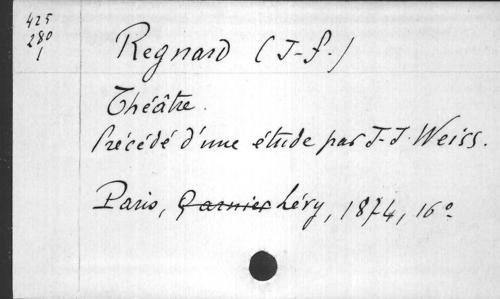 425
280
1
Regnard (J-f.)
Théâtre.
Précédé d'une étude par J-J. Weiss.
Paris, Garnier Lévy, 1874, 16º.